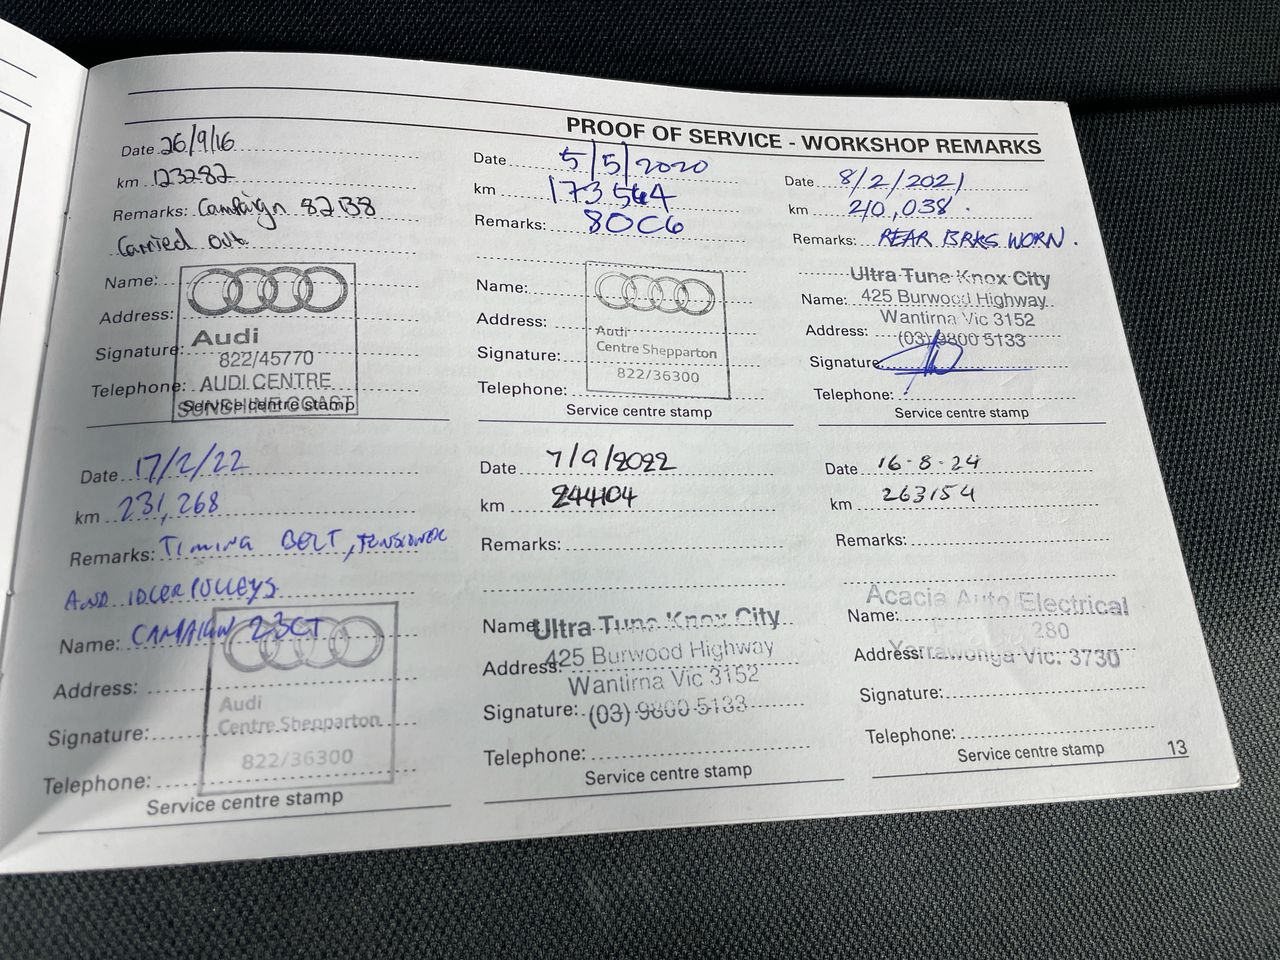 PROOF OF SERVICE - WORKSHOP REMARKS
Date 26/9/16
km 123282
Remarks: Campaign 82B8
Carried out
Name:
Address:
Signature:
Telephone:
Audi
822/45770
AUDI CENTRE
SUNSHINE COAST
Service centre stamp
Date 5/5/2020
km 173564
Remarks: 80C6
Name:
Address:
Signature:
Telephone:
Audi
Centre Shepparton
822/36300
Service centre stamp
Date 8/2/2021
km 210,038.
Remarks: REAR BRKS WORN.
Ultra Tune Knox City
Name: 425 Burwood Highway
Wantirna Vic 3152
Address: (03) 9800 5133
Signature
Telephone:
Service centre stamp
Date 17/2/22
km 231,268
Remarks: TIMING BELT, TENSIONER
AND IDLER PULLEYS
Name: CAMPAIGN 23CT
Address:
Signature:
Telephone:
Audi
Centre Shepparton
822/36300
Service centre stamp
Date 7/9/2022
km 244104
Remarks:
Name: Ultra Tune Knox City
Address: 425 Burwood Highway
Wantirna Vic 3152
Signature: (03) 9800 5133
Telephone:
Service centre stamp
Date 16-8-24
km 263154
Remarks:
Acacia Auto Electrical
Name: 280
Address: Yarrawonga Vic. 3730
Signature:
Telephone:
Service centre stamp
13